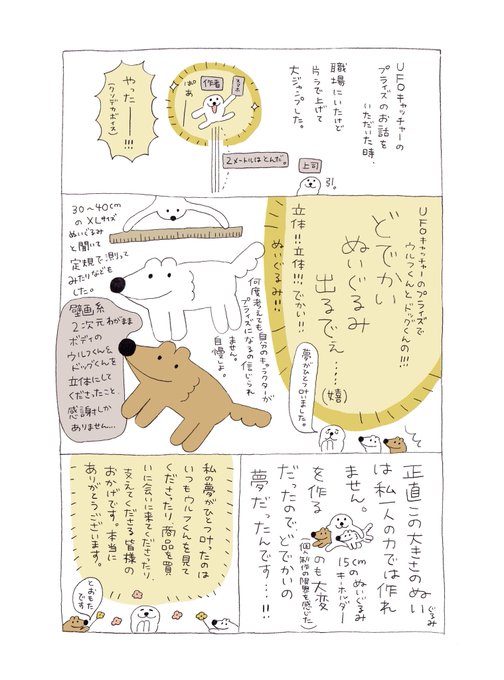 UFOキャッチャーの
プライズのお話を
いただいた時、
職場にいたけど
片手で上げて
大ジャンプした。
作者
ぱあ
2メートルはとんだ。
上司
引。
やったー———!!!
(クソデカボイス)
UFOキャッチャーのプライズで
ウルフくんとドッグくんの!!!
どでかい
ぬいぐるみ
出るでぇ……
(嬉)
立体!!立体!!!でかい!!
ぬいぐるみ!!
夢がひとつ叶いました。
30〜40cm
のXLサイズ
ぬいぐるみ
と聞いて
定規で測って
みたりなども
した。
何度考えても自分のキャラクターが
プライズになるの信じられ
ません。
自慢しよ。
壁画系
2次元わがまま
ボディの
ウルフくんと
ドッグくんを
立体にして
くださったこと、
感謝しか
ありません…
正直この大きさのぬいぐるみ
は私一人の力では作れ
ません。
15cmのぬいぐるみ
キーホルダー
を作るのも大変
(個人制作の限界を感じた)
だったので、どでかいの
夢だったんです…!!
私の夢がひとつ叶ったのは
いつもウルフくんを見て
くださったり、商品を買
いに会いに来てくださったり、
支えてくださる皆様の
おかげです。本当に
ありがとうございます。
とおもた
です